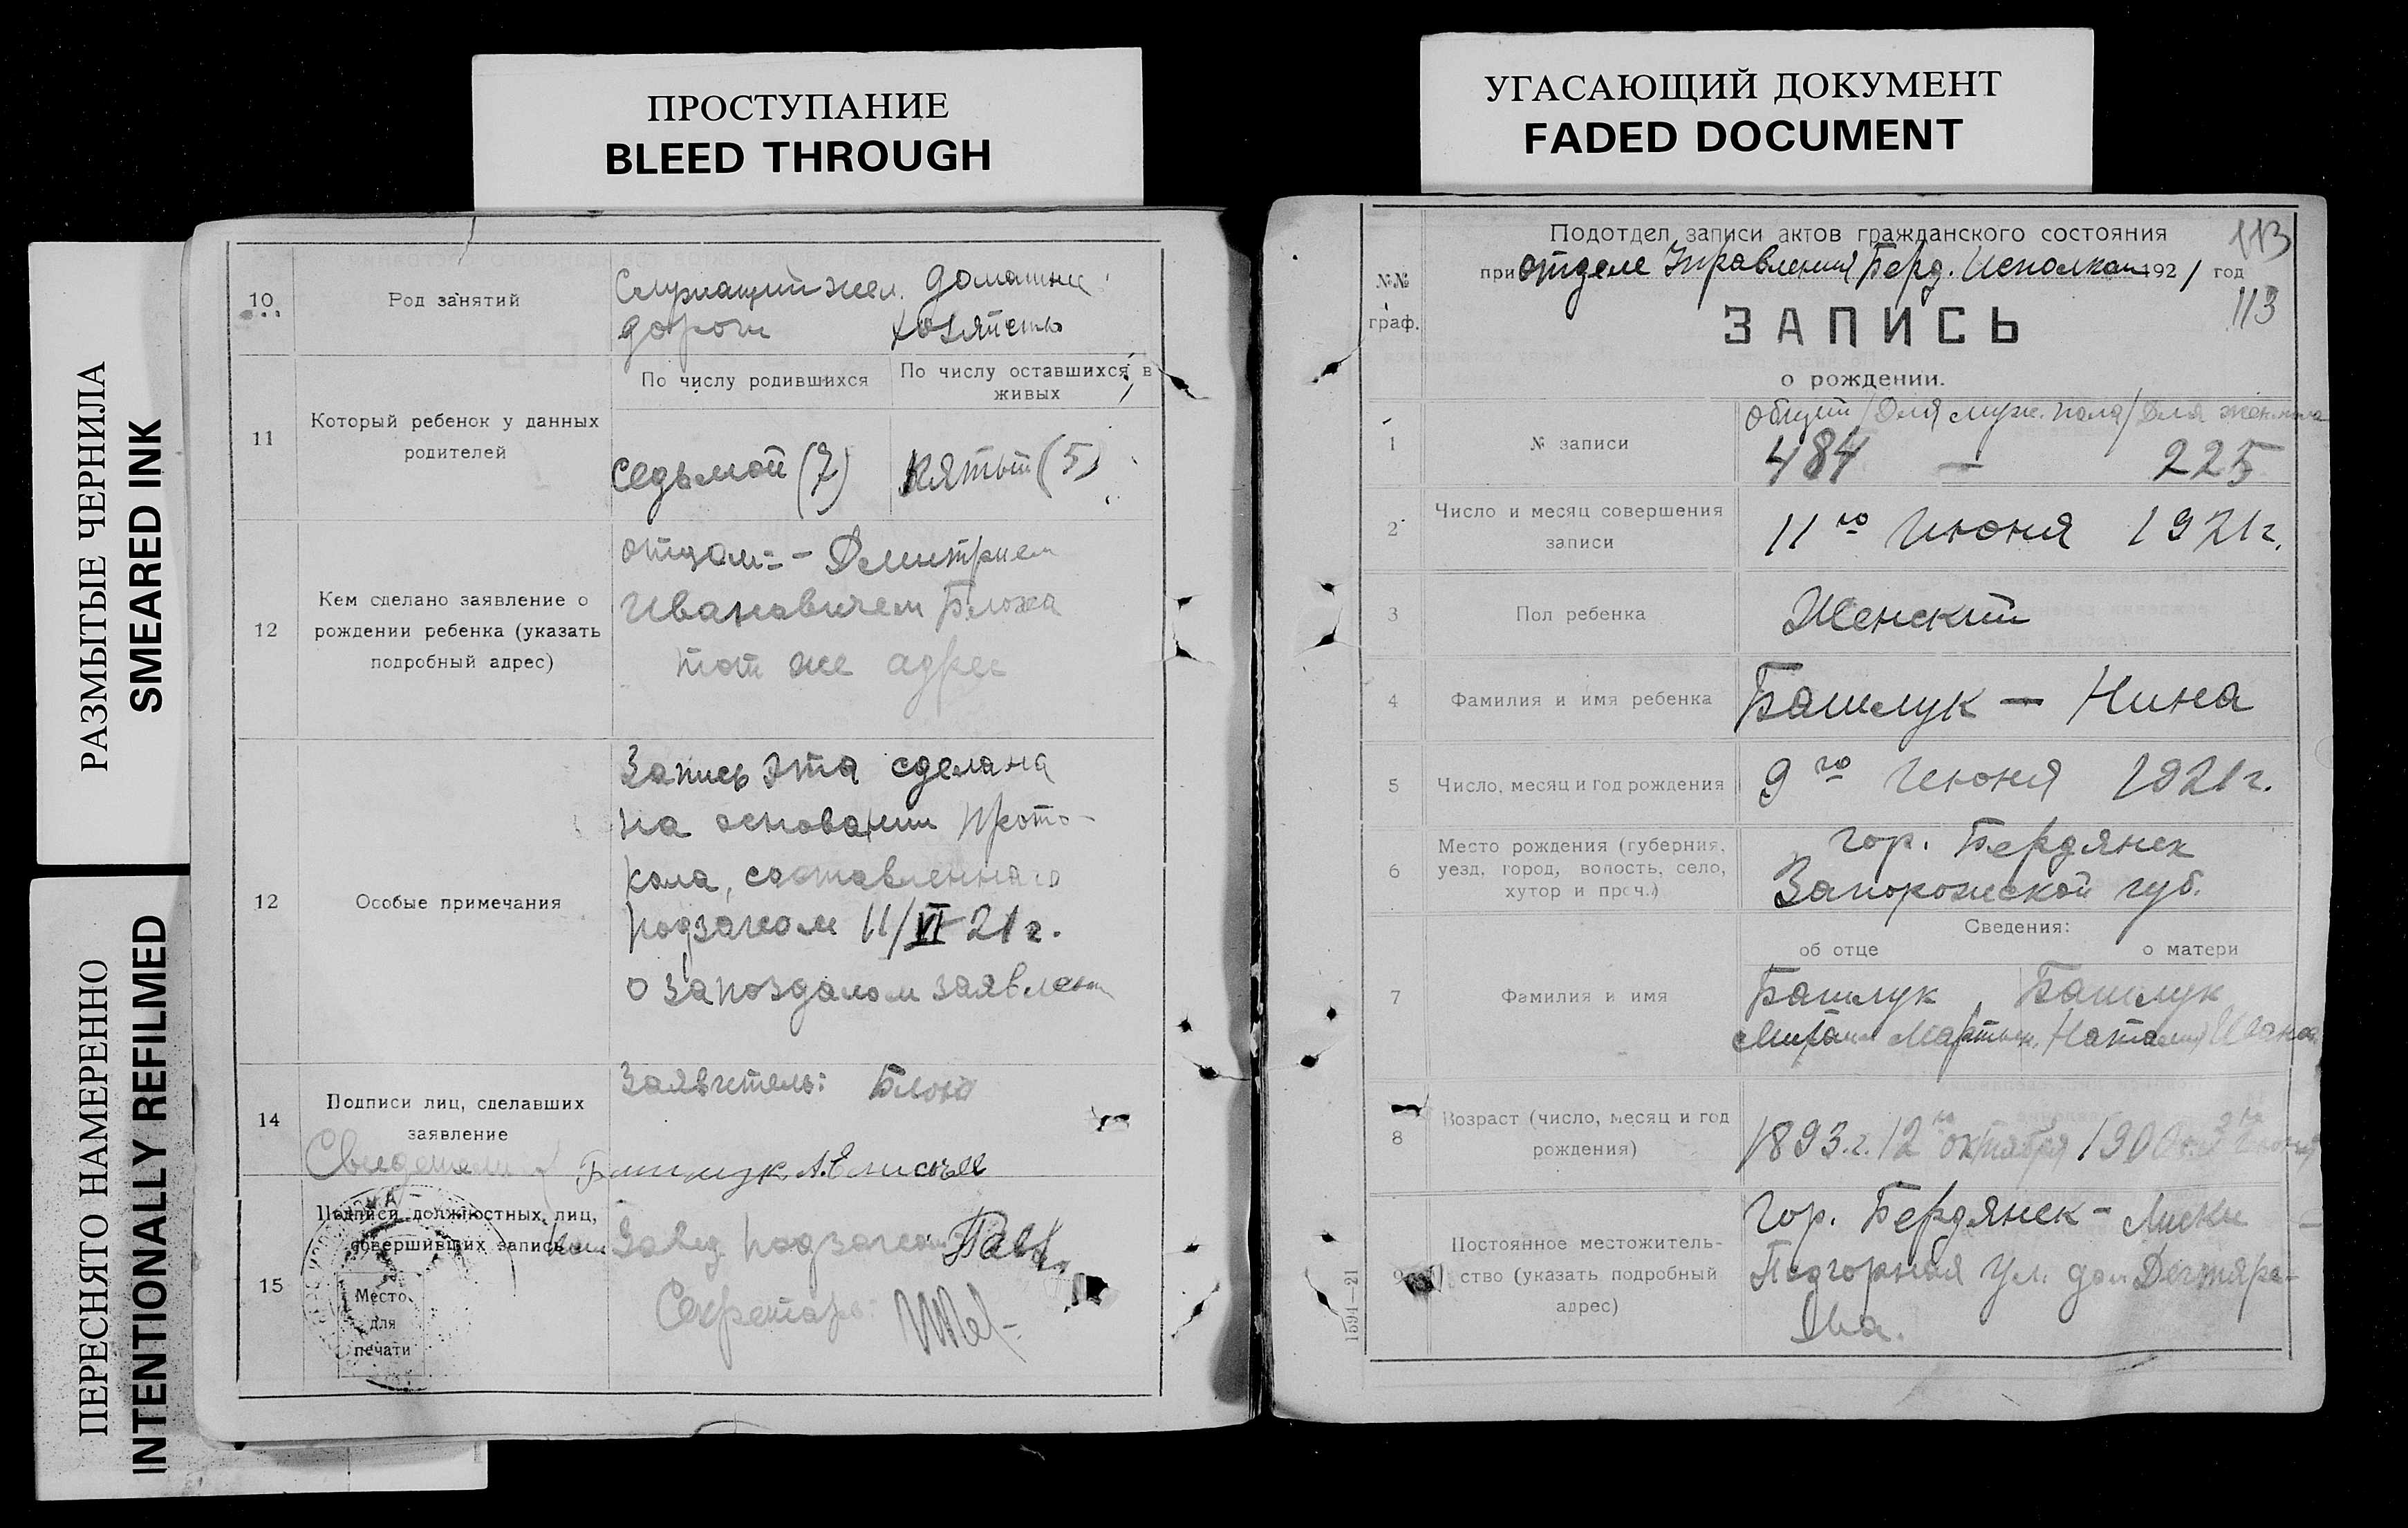 ПРОСТУПАНИЕ
BLEED THROUGH
УГАСАЮЩИЙ ДОКУМЕНТ
FADED DOCUMENT
РАЗМЫТЫЕ ЧЕРНИЛА
SMEARED INK
ПЕРЕСНЯТО НАМЕРЕННО
INTENTIONALLY REFILMED
10
Род занятий
Служащий жел. домашнее
дороги хозяйство
11
Который ребенок у данных
родителей
По числу родившихся
По числу оставшихся в
живых
Седьмой (7)
Пятый (5)
12
Кем сделано заявление о
рождении ребенка (указать
подробный адрес)
отцом: - Дмитрием
Ивановичем Блоха
тот же адрес
12
Особые примечания
Запись эта сделана
на основании прото-
кола, составленного
подзагсом 11/VI 21 г.
о запоздалом заявлении
14
Подписи лиц, сделавших
заявление
Заявитель: Блоха
Свидетели
Башлук А.
15
Подписи должностных лиц,
совершивших запись
Место
для
печати
Завед. подзагсом
Секретарь:
№№
граф.
Подотдел записи актов гражданского состояния
при отделе Управления Берд. Исполком 1921 год
113
113
ЗАПИСЬ
о рождении.
1
№ записи
общий / для муж. пола / для жен. пола
484 — 225
2
Число и месяц совершения
записи
11го Июня 1921 г.
3
Пол ребенка
Женский
4
Фамилия и имя ребенка
Башлук — Нина
5
Число, месяц и год рождения
9го Июня 1921 г.
6
Место рождения (губерния,
уезд, город, волость, село,
хутор и проч.)
гор. Бердянск
Запорожской губ.
Сведения:
об отце
о матери
7
Фамилия и имя
Башлук, Башлук
Михаил Мартын. Наталия Иванов.
8
Возраст (число, месяц и год
рождения)
1893 г. 12го октября 1900
9
Постоянное местожитель-
ство (указать подробный
адрес)
Гор. Бердянск - Лиски -
Подгорная ул. дом Дегтяре-
ва.
1594—21